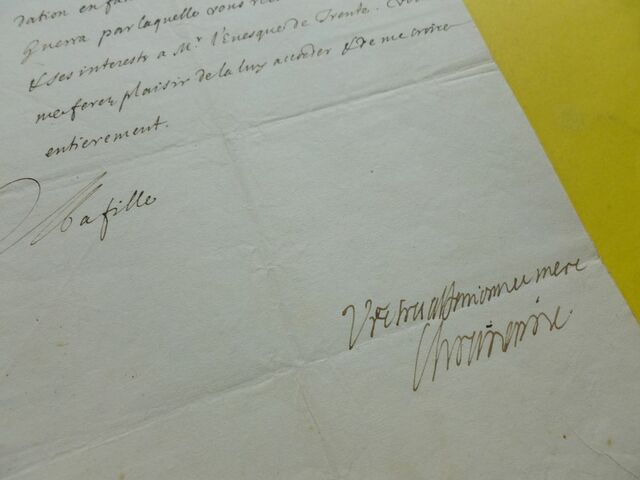 dation en fa
Guerra par laquelle vous rec
& ses interests a Mr. l'Euesque de Trente. Vo
me ferez plaisir de la luy accorder & de me croire
entierement.
Ma fille
Vre tres affectionnee mere
Chrestienne